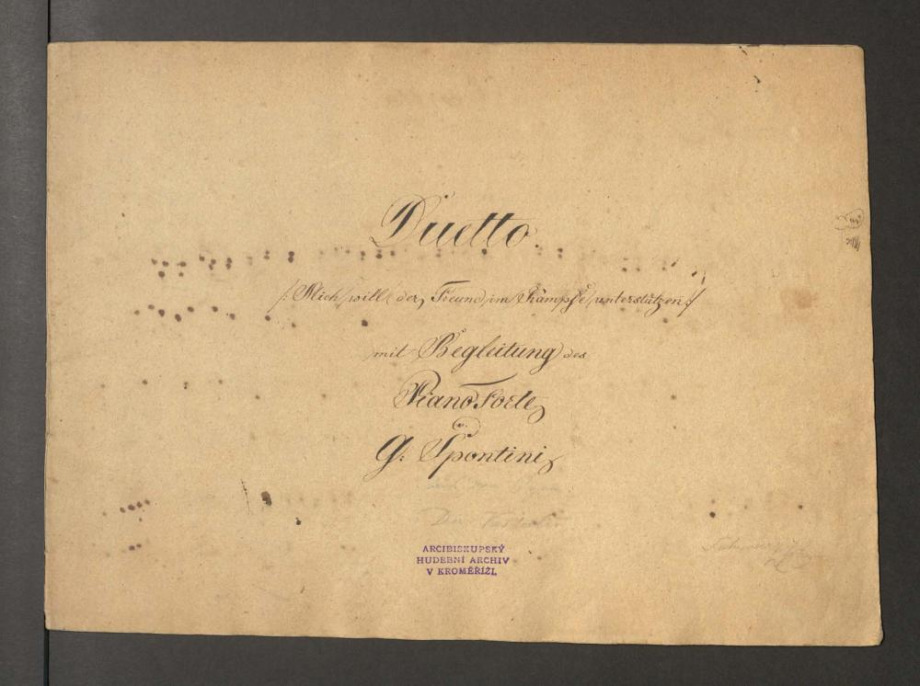 Duetto
/: Mich will der Freund im Kampfe unterstützen :/
mit Begleitung des
Piano Forte
v.
G. Spontini
ARCIBISKUPSKÝ
HUDEBNÍ ARCHIV
V KROMĚŘÍŽI.